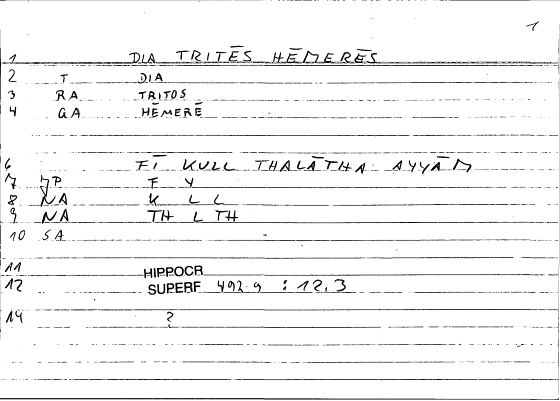 1
1 DIA TRITĒS HĒMERĒS
2 T DIA
3 RA TRITOS
4 GA HĒMERĒ
6 FĪ KULL THALĀTHA AYYĀM
7 JP F Y
8 NA K L L
9 NA TH L TH
10 SA
11 HIPPOCR
12 SUPERF 492.9 : 12,3
14 ?